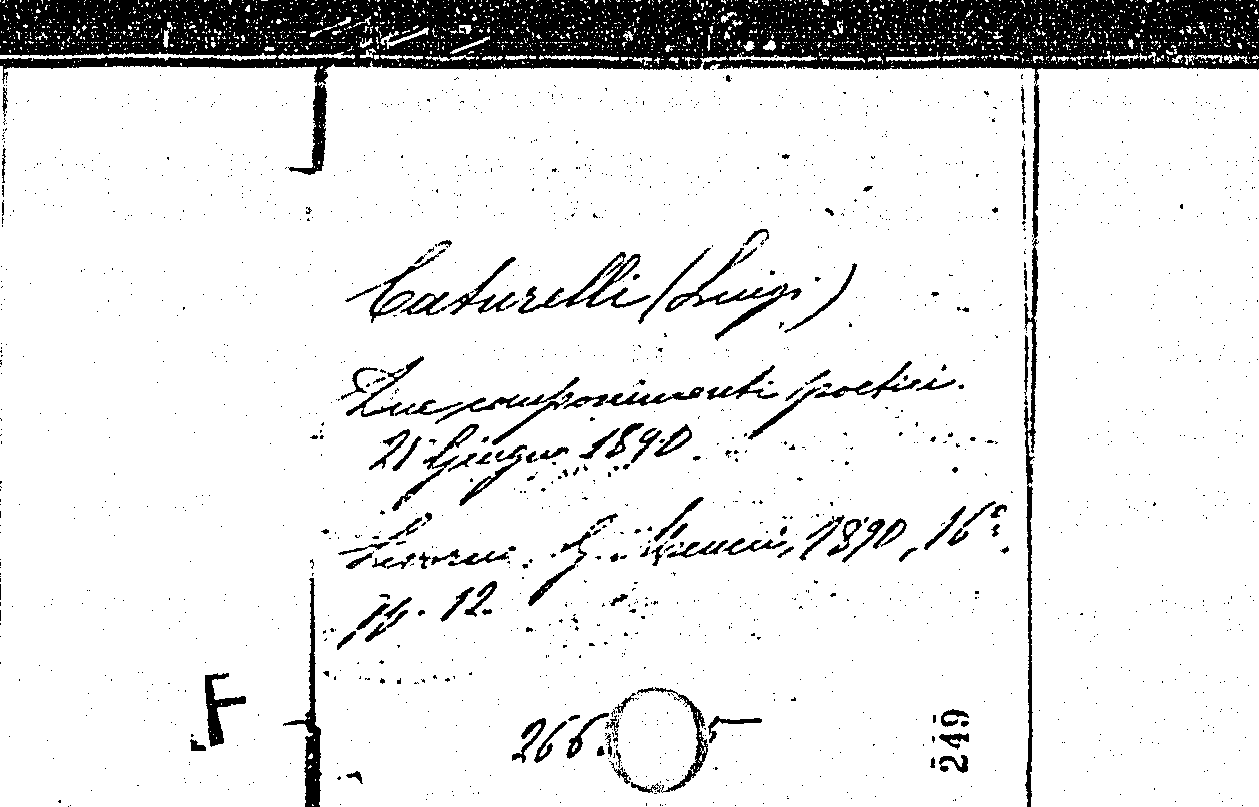 Caturelli (Luigi)
Due componimenti poetici.
21 Giugno 1890.
Livorno, G. Meucci, 1890, 16º,
pp. 12.
F
266.
249